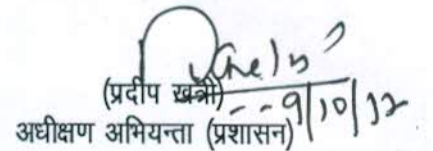 (प्रदीप खत्री)
9/10/12
अधीक्षण अभियन्ता (प्रशासन)